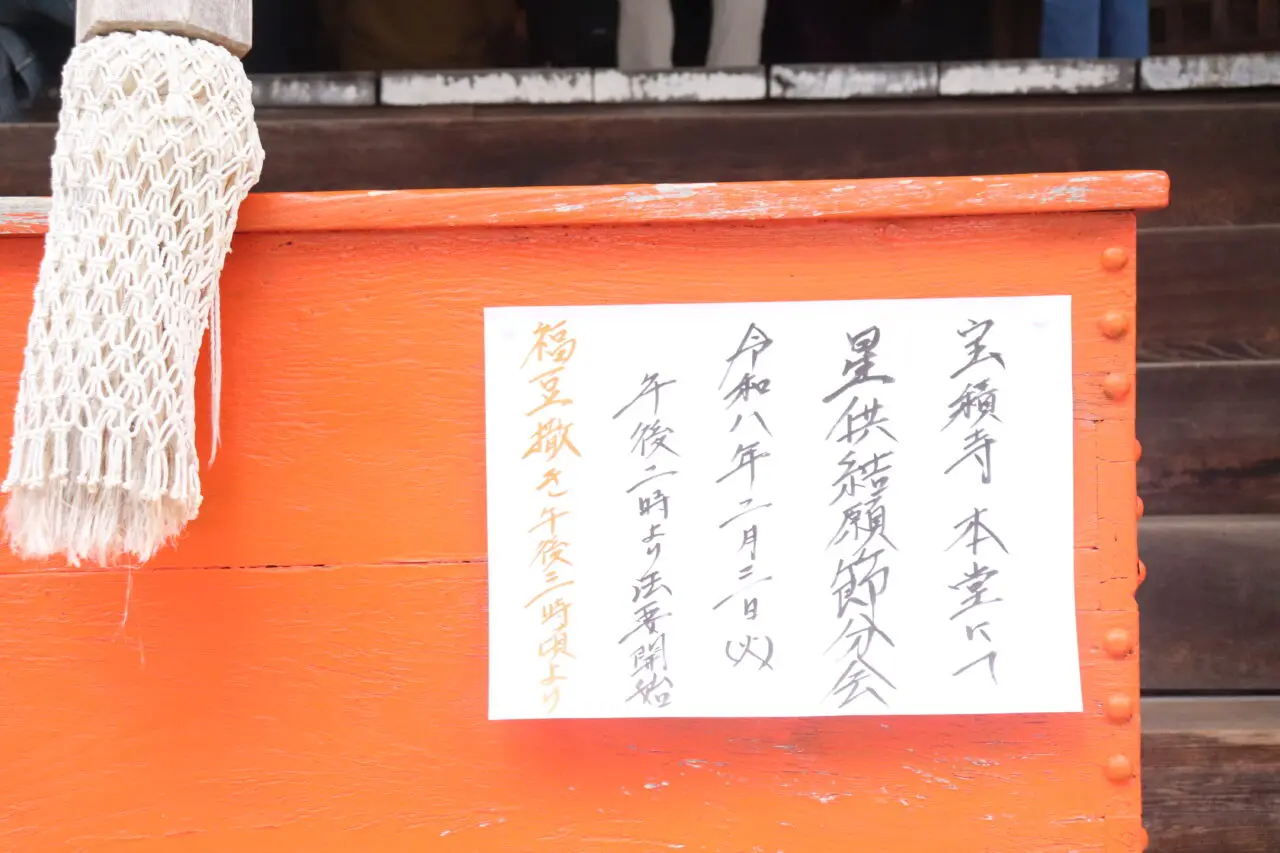 宝積寺 本堂にて
星供結願節分会
令和八年二月三日(火)
午後二時より法要開始
福豆撒き午後三時頃より